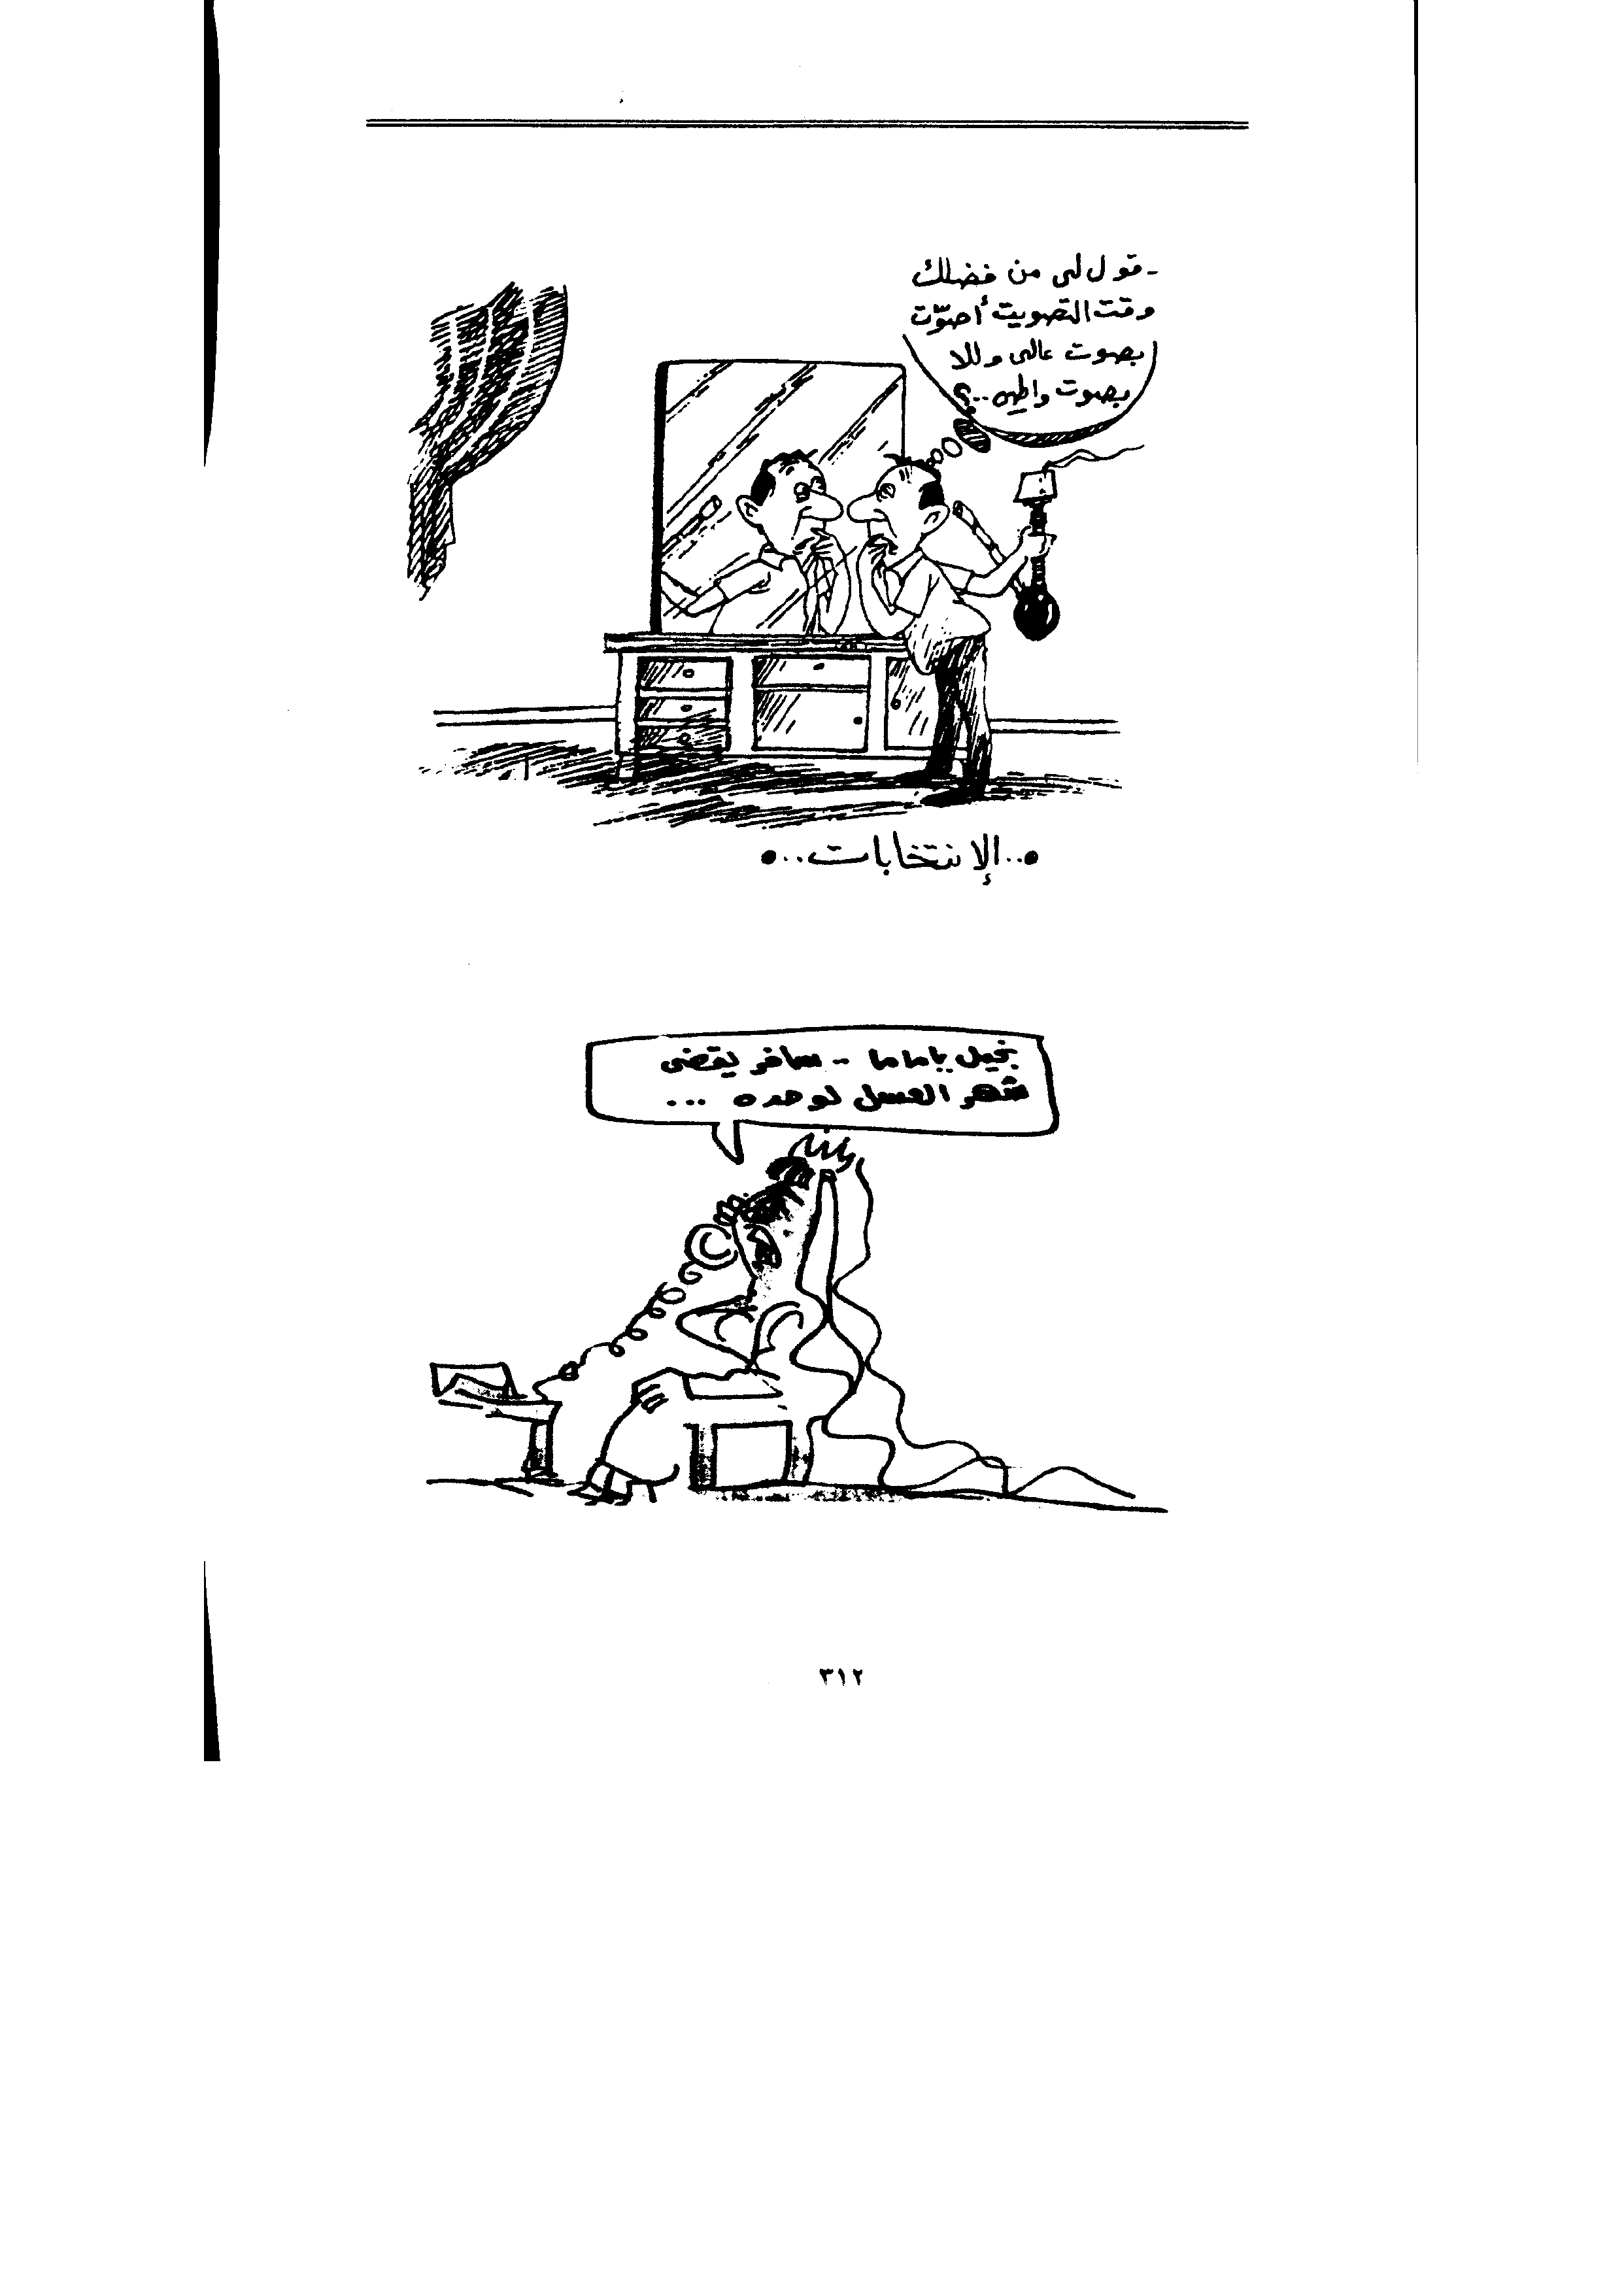 - قول لى من فضلك
وقت التصويت أصوّت
بصوت عالى وللا
بصوت واطى ..؟
..الإنتخابات..
بخيل ياماما .. سافر يقضى
شهر العسل لوحده ...
٣١٢